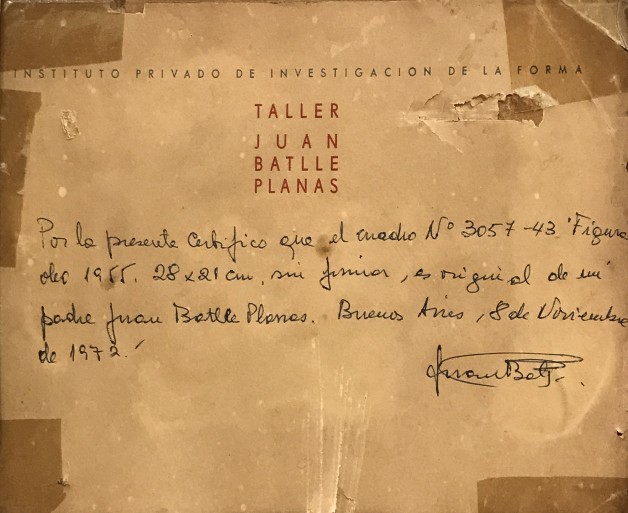 INSTITUTO PRIVADO DE INVESTIGACION DE LA FORMA
TALLER
JUAN
BATLLE
PLANAS
Por la presente Certifico que el cuadro Nº 3057-43 "Figura
oleo 1955. 28x21 cm, sin firmar, es original de mi
padre Juan Batlle Planas. Buenos Aires, 8 de Noviembre
de 1972.
Juan Batlle